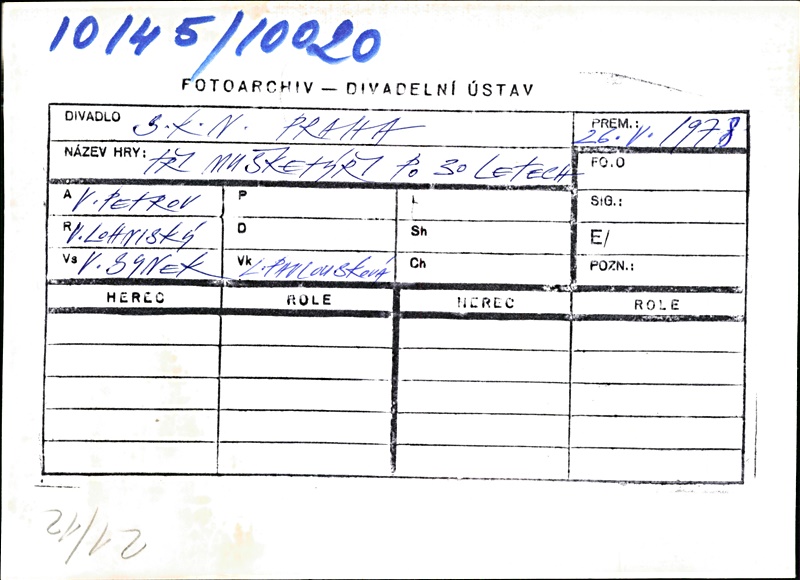 10145/10020
FOTOARCHIV — DIVADELNÍ ÚSTAV
DIVADLO S.K.N. PRAHA
PREM.: 26. V. 1978
NÁZEV HRY: TŘI MUŠKETÝŘI PO 30 LETECH
FOTO
A V. PETROV
P
L
SIG.:
R V. LOHNISKÝ
D
Sh
E/
Vs V. SYNEK
Vk L. PAVLOUSKOVÁ
Ch
POZN.:
HEREC ROLE HEREC ROLE
21/12